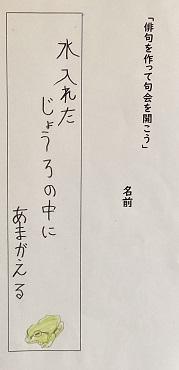 「俳句を作って句会を開こう」
名前
水入れた
じょうろの中に
あまがえる